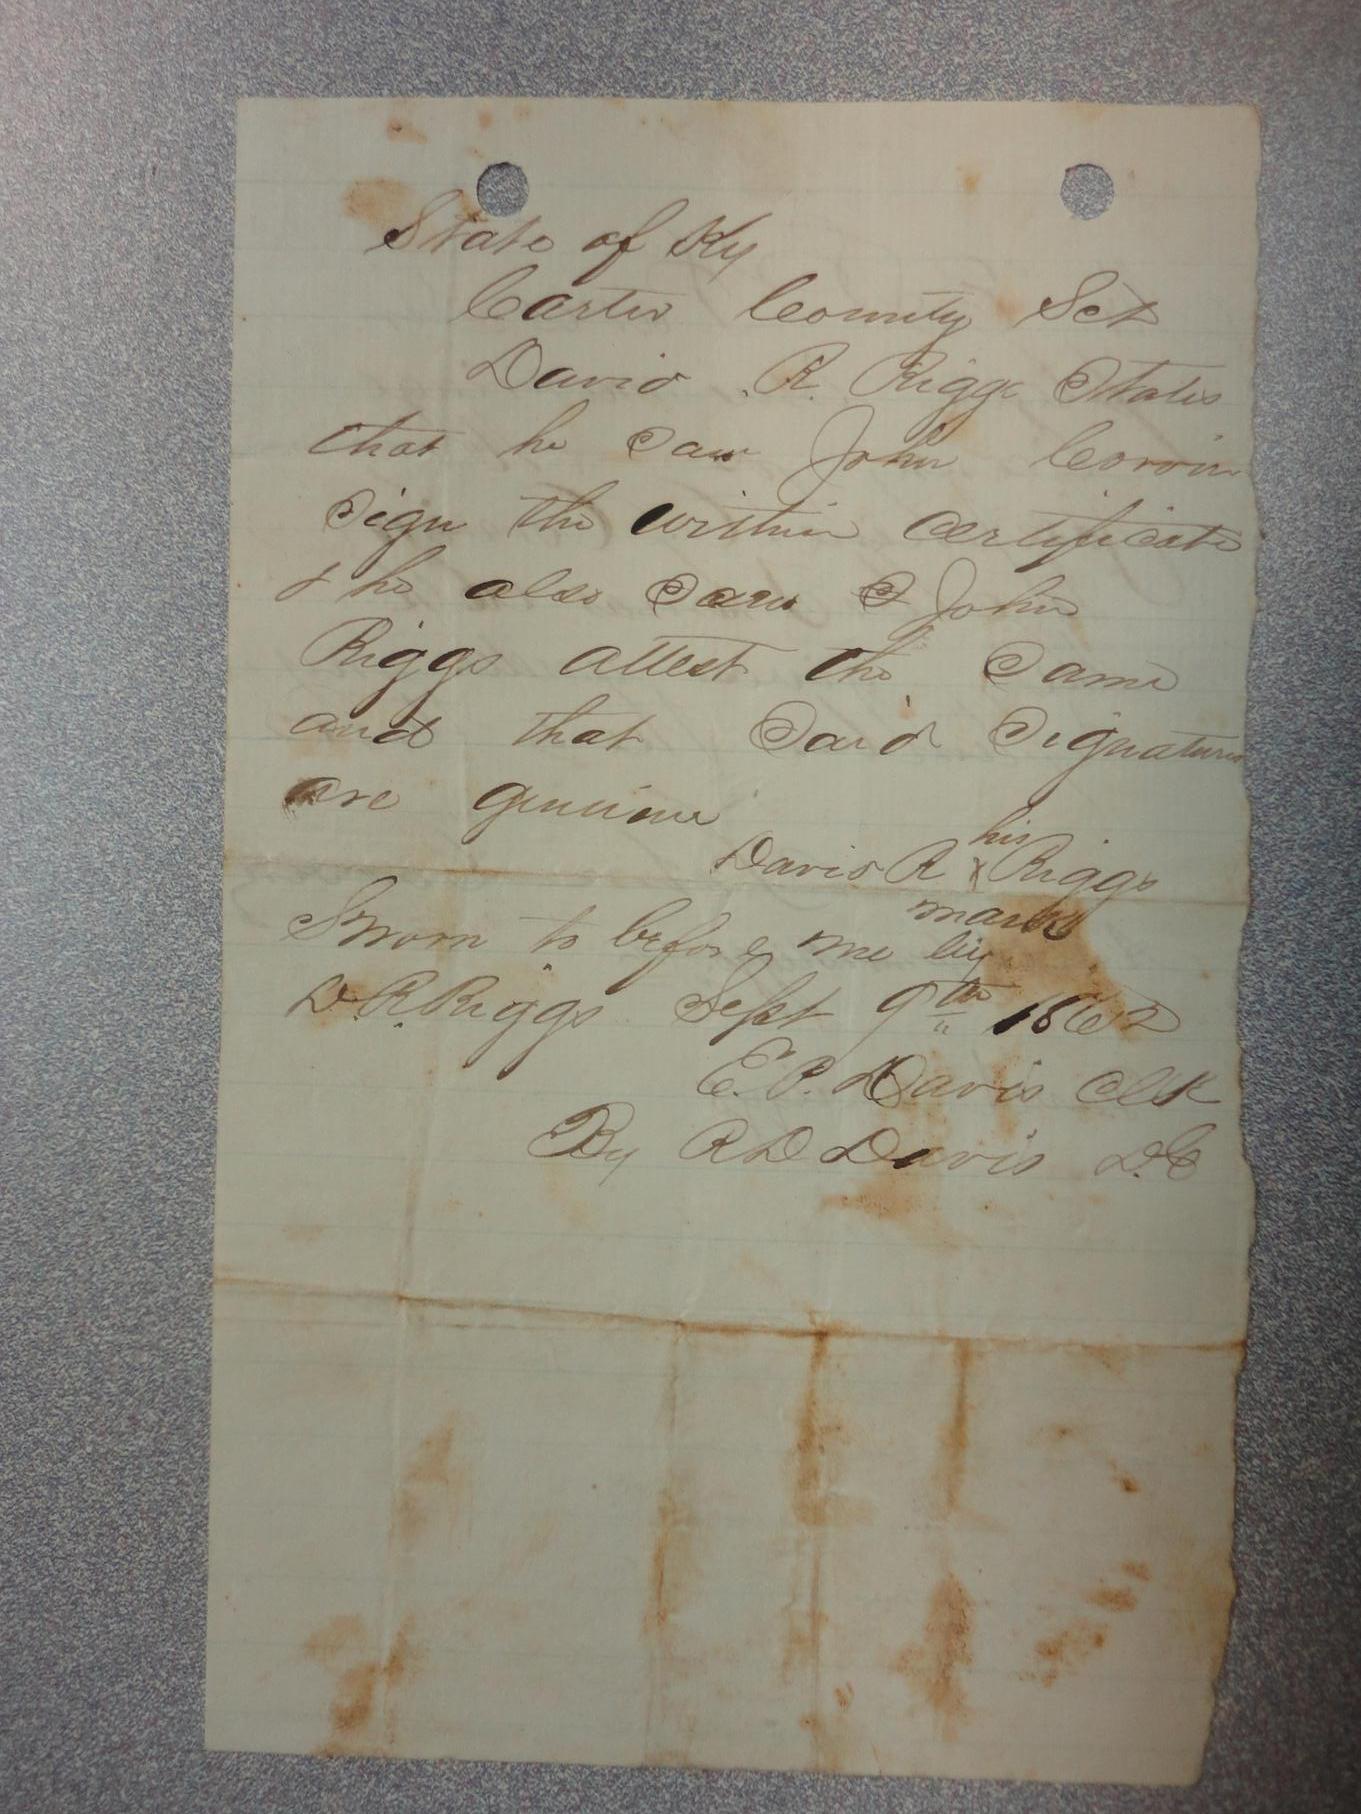 State of Ky
Carter County Sct
David R. Riggs States
that he saw John
sign the within certificate
& he also saw John
Riggs attest the same
and that said signatures
are genuine
his
David R x Riggs
mark
Sworn to before me by
D. R. Riggs Sept 9th 1862
E. P. Davis Clk
By R D Davis D.C